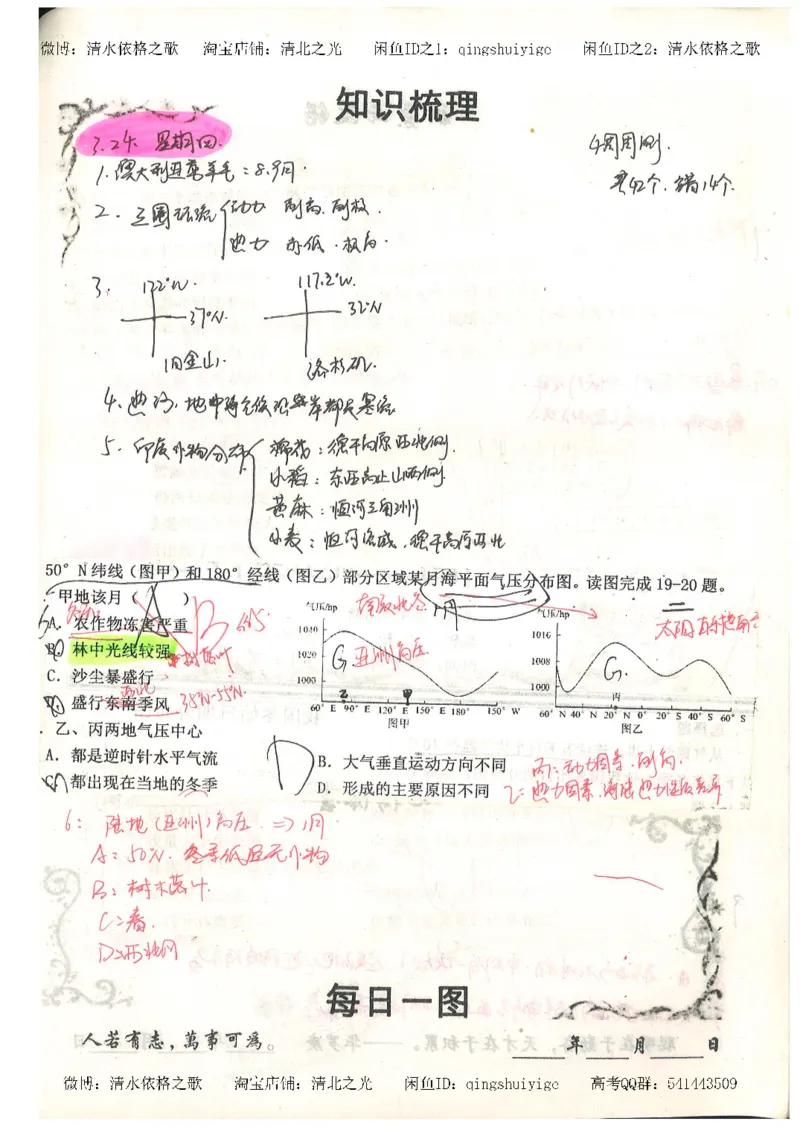 微博：清水依格之歌 淘宝店铺：清北之光 闲鱼ID之1：qingshuiyige 闲鱼ID之2：清水依格之歌
知识梳理
3.24. 星期四.
4周周测.
共42个，错14个.
1.澳大利亚剪羊毛：8.9月.
2. 三圈环流 动力 副高.副极.
热力 赤低.极高.
3. 122°W. 117.2°W.
37°N. 32°N
旧金山. 洛杉矶.
5. 印度作物分布 棉花：德干高原西北侧.
水稻：东西高止山两侧.
黄麻：恒河三角洲
小麦：恒河流域.德干高原西北
50°N纬线（图甲）和180°经线（图乙）部分区域某月海平面气压分布图。读图完成19-20题。
甲地该月（ ）
A. 农作物冻害严重
B. 林中光线较强
C. 沙尘暴盛行
D. 盛行东南季风
35°N-55°N.
B
气压/hp
1040
1020
1000
G 亚洲高压
60°E 90°E 120°E 150°E 180° 150°W
乙 甲
图甲
1月
气压/hp
1016
1008
1000
G.
丙
60°N 40°N 20°N 0° 20°S 40°S 60°S
图乙
乙、丙两地气压中心
A. 都是逆时针水平气流
B. 大气垂直运动方向不同
C. 都出现在当地的冬季
D. 形成的主要原因不同
D
丙：动力因素.副高.
乙：热力因素.海陆热力性质差异
6： 陆地（亚洲）高压.⇒1月
A：50°N. 冬季低温无作物
B：树木落叶.
C：春.
D：西北风
每日一图
人若有志，萬事可為。
年 月 日
微博：清水依格之歌 淘宝店铺：清北之光 闲鱼ID：qingshuiyige 高考QQ群：541443509